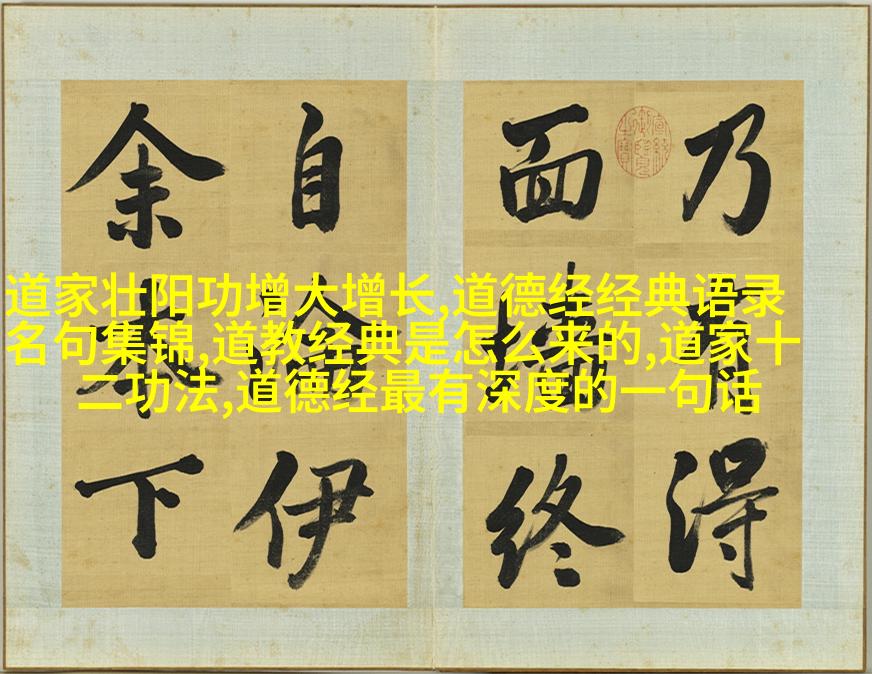 乃得
面终
自伊
余本下
道家壮阳功增大增长,道德经经典语录
名句集锦,道教经典是怎么来的,道家十
二功法,道德经最有深度的一句话